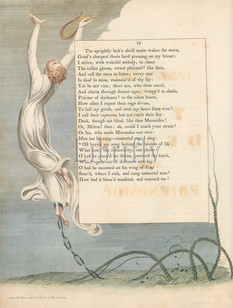 The sprightly lark's shrill matin wakes the morn;
Grief's sharpest thorn hard pressing on my breast,
I strive, with wakeful melody, to cheer
The sullen gloom, sweet philomel! like thee,
And call the stars to listen: every star
Is deaf to mine, enamour'd of thy lay:
Yet be not vain; there are, who thine excel,
And charm through distant ages: wrapt in shade,
Prisoner of darkness! to the silent hours,
How often I repeat their rage divine,
To lull my griefs, and steal my heart from woe!
I roll their raptures, but not catch their fire:
Dark, though not blind, like thee Mæonides!
Or, Milton! thee; ah, could I reach your strain!
Or his, who made Mæonides our own!
Man too he sung: immortal man I sing:
* Oft bursts my song beyond the bounds of life;
What now, but immortality, can please?
O had he press'd his theme, pursued the track,
Which opens out of darkness into day!
O had he mounted on his wing of fire,
Soar'd, where I sink, and sung immortal man!
How had it bless'd mankind, and rescued me!